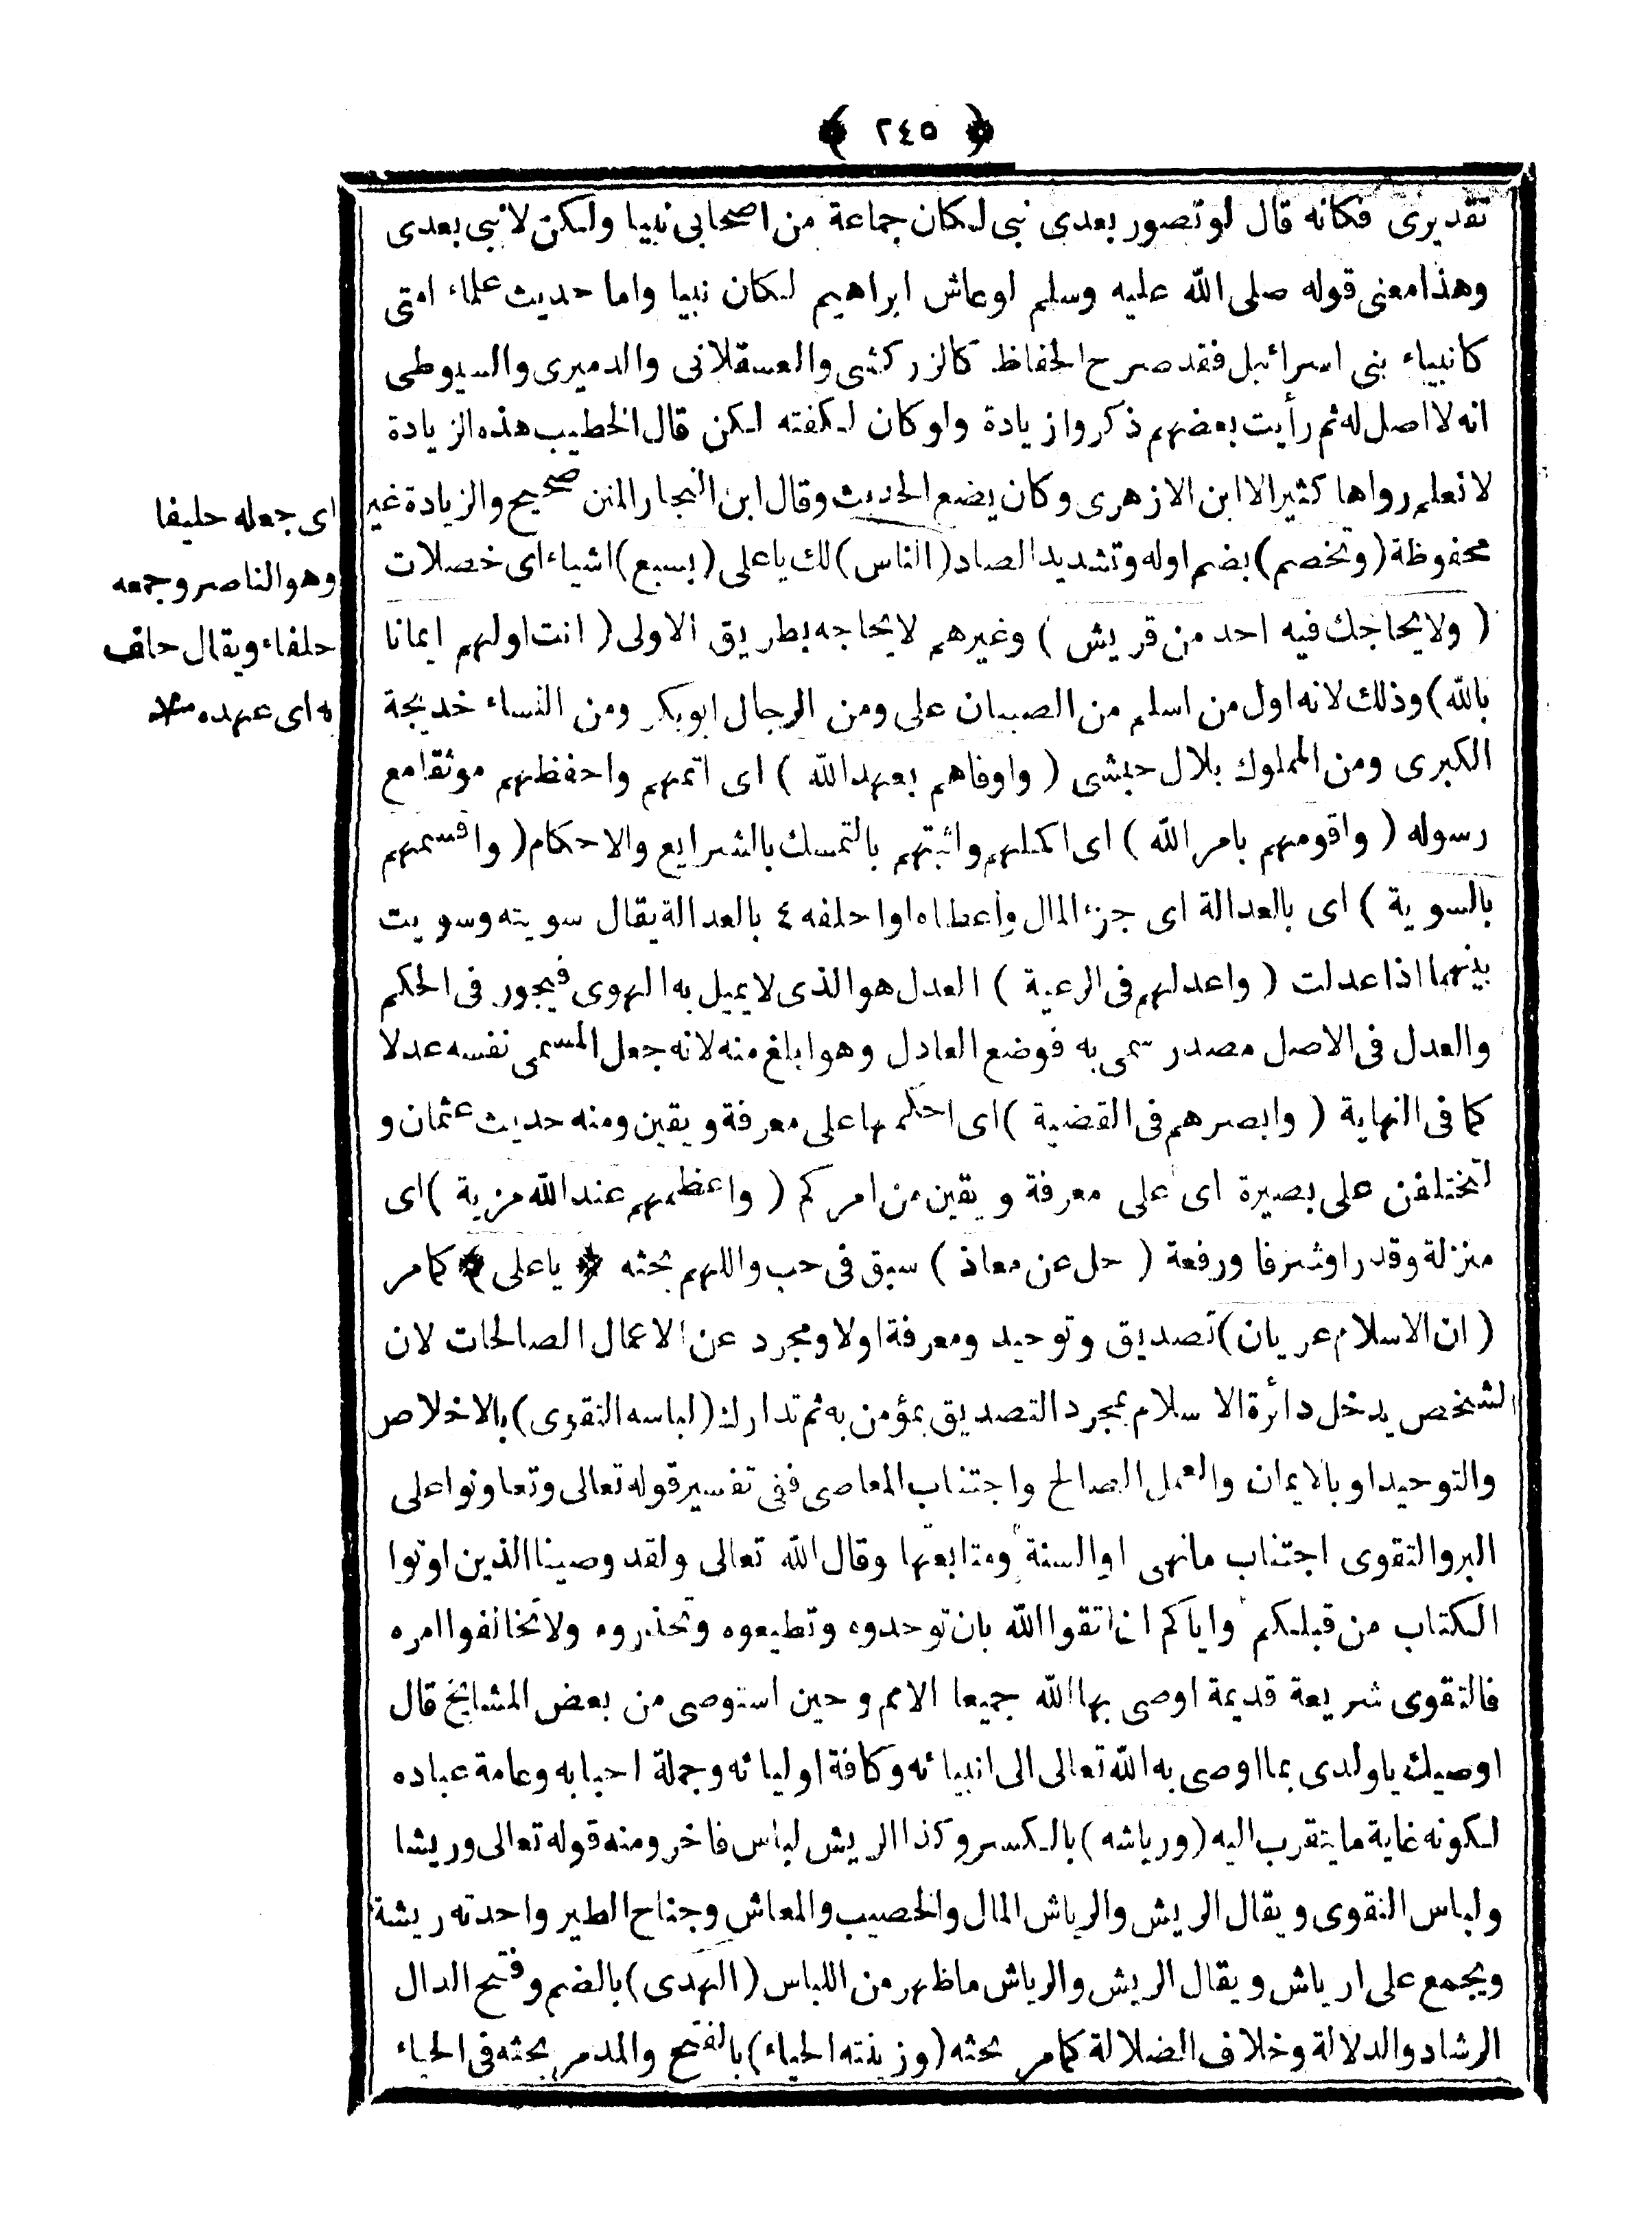 ﴿ ٢٤٥ ﴾
تقديرى فكانه قال لو تصور بعدى نبى لكان جماعة من اصحابى نبيا ولكن لا نبى بعدى
وهذا معنى قوله صلى الله عليه وسلم لو عاش ابراهيم لكان نبيا واما حديث علماء امتى
كانبياء بنى اسرائيل فقد صرح الحفاظ كالزركشى والعسقلانى والدميرى والسيوطى
انه لا اصل له ثم رأيت بعضهم ذكروا زيادة ولو كان لكفته لكن قال الخطيب هذه الزيادة
لا نعلم رواها كثير الا ابن الازهرى وكان يضع الحديث وقال ابن النجار المتن صحيح والزيادة غير
محفوظة (وتخصم) بضم اوله وتشديد الصاد (الناس) لك يا على (بسبع) اشياء اى خصلات
( ولا يحاجك فيه احد من قريش ) وغيرهم لا يحاجه بطريق الاولى ( انت اولهم ايمانا
بالله) وذلك لانه اول من اسلم من الصبيان على ومن الرجال ابو بكر ومن النساء خديجة
الكبرى ومن المملوك بلال حبشى ( واوفاهم بعهد الله ) اى اتمهم واحفظهم موثقا مع
رسوله ( واقومهم بامر الله ) اى اكملهم واثبتهم بالتمسك بالشرايع والاحكام ( واقسمهم
بالسوية ) اى بالعدالة اى جزء المال واعطاه اوا حلفه ٤ بالعدالة يقال سويته وسويت
بينهما اذا عدلت ( واعدلهم فى الرعية ) العدل هو الذى لا يميل به الهوى فيجور فى الحكم
والعدل فى الاصل مصدر سمى به فوضع العادل وهو ابلغ منه لانه جعل المسمى نفسه عدلا
كما فى النهاية ( وابصرهم فى القضية ) اى احكمها على معرفة ويقين ومنه حديث عثمان و
لتختلفن على بصيرة اى على معرفة ويقين من امركم ( واعظمهم عند الله مزية ) اى
منزلة وقدرا وشرفا ورفعة ( حل عن معاذ ) سبق فى حب واللهم بحثه ﴿ يا على ﴾ كما مر
( ان الاسلام عريان) تصديق وتوحيد ومعرفة اولا ومجرد عن الاعمال الصالحات لان
الشخص يدخل دائرة الاسلام بمجرد التصديق بمؤمن به ثم تدارك (لباسه التقوى) بالاخلاص
والتوحيد او بالايمان والعمل الصالح واجتناب المعاصى ففى تفسير قوله تعالى وتعاونوا على
البر والتقوى اجتناب ما نهى او السنة ومتابعتها وقال الله تعالى ولقد وصينا الذين اوتوا
الكتاب من قبلكم واياكم ان اتقوا الله بان توحدوه وتطيعوه وتحذروه ولا تخالفوا امره
فالتقوى شريعة قديمة اوصى بها الله جميعا الامم وحين استوصى من بعض المشايخ قال
اوصيك يا ولدى بما اوصى به الله تعالى الى انبيائه وكافة اوليائه وجملة احبابه وعامة عباده
لكونه غاية ما يتقرب اليه (ورياشه) بالكسر وكذا الريش لباس فاخر ومنه قوله تعالى وريشا
ولباس التقوى ويقال الريش والرياش المال والخصيب والمعاش وجناح الطير واحدته ريشة
ويجمع على ارياش ويقال الريش والرياش ما ظهر من اللباس (الهدى) بالضم وفتح الدال
الرشاد والدلالة وخلاف الضلالة كما مر بحثه (وزينته الحياء) بالفتح والمد مر بحثه فى الحياء
اى جعله حليفا
وهو الناصر وجمعه
حلفاء ويقال حالف
به اى عهده